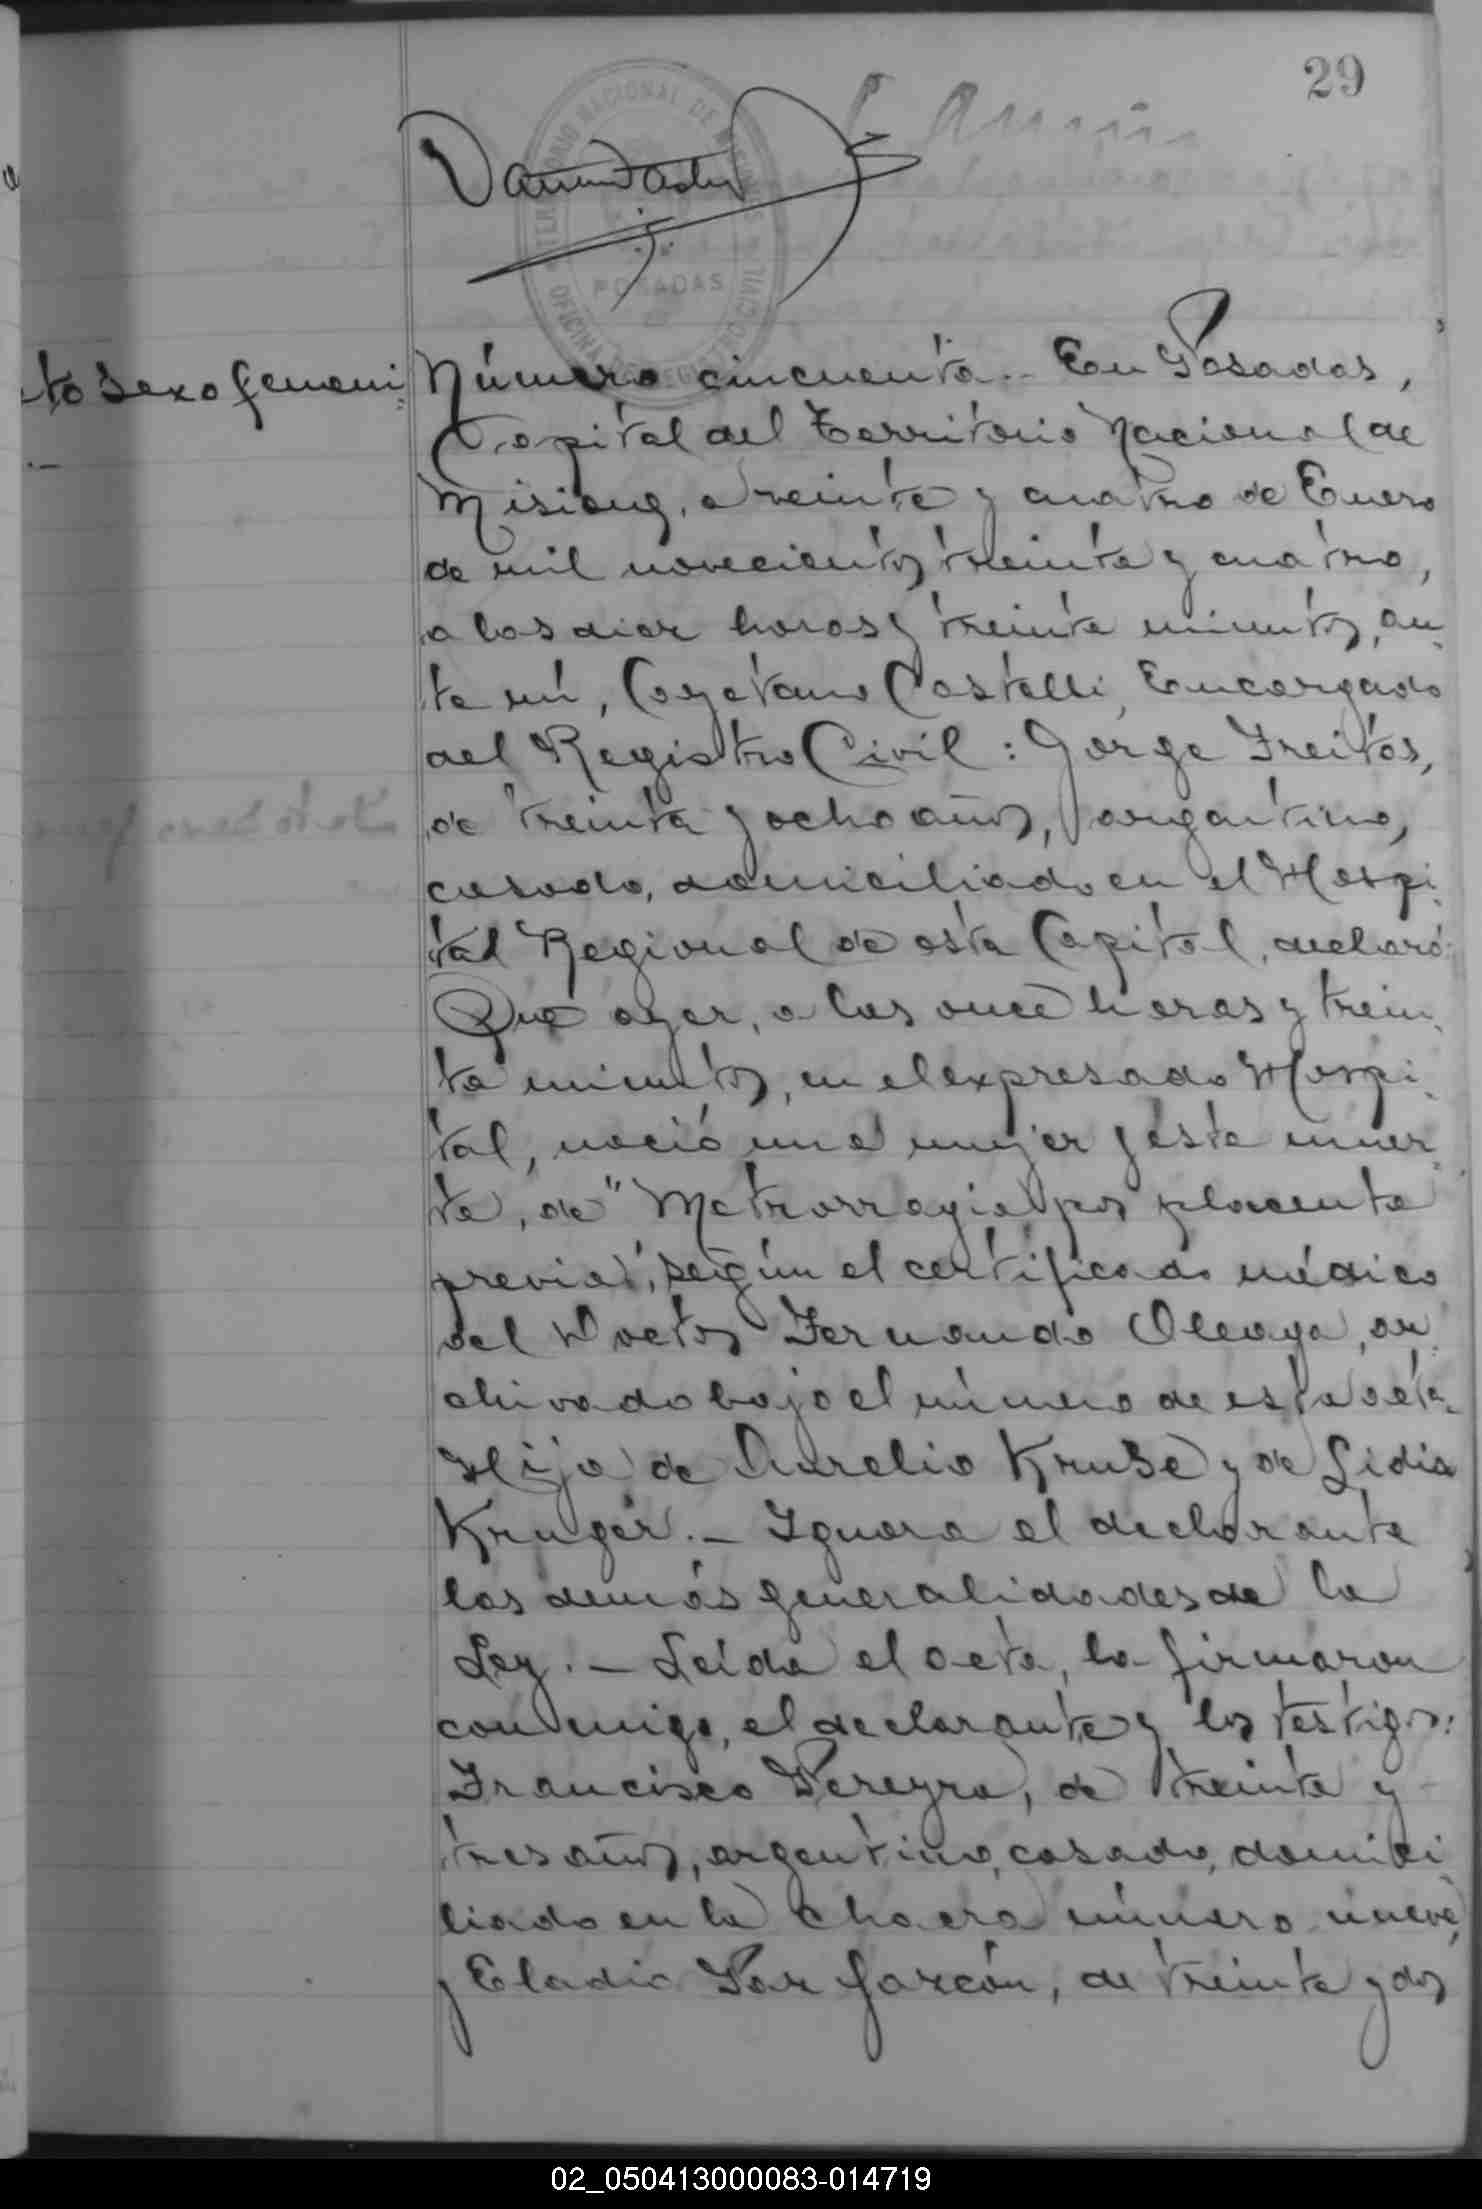 29
MUNICIPALIDAD NACIONAL DE MISIONES
POSADAS
OFICINA DEL REGISTRO CIVIL
to sexo femeni
Número cincuenta.- En Posadas,
Capital del Territorio Nacional de
Misiones, a veinte y cuatro de Enero
de mil novecientos treinta y cuatro,
a las diez horas y treinta minutos, an
te mí, Cayetano Castelli, Encargado
del Registro Civil: Jorge Freitas,
de treinta y ocho años, argentino,
casado, domiciliado en el Hospi
tal Regional de esta Capital, declaró:
Que ayer, a las once horas y trein
ta minutos, en el expresado Hospi
tal, nació una mujer y ésta muer
ta, de "Metrorragia por placenta
previa", según el certificado médico
del Doctor Fernando Oleaga, ar
chivado bajo el número de esta acta.
Hija de Aurelio Kruse y de Lidia
Kruger.- Ignora el declarante
las demás generalidades de la
Ley.- Leída el acta, la firmaron
conmigo, el declarante y los testigos:
Francisco Pereyra, de treinta y
tres años, argentino, casado, domici
liado en la chacra número nueve,
y Eladio Paz Garzón, de treinta y dos
02_050413000083-014719